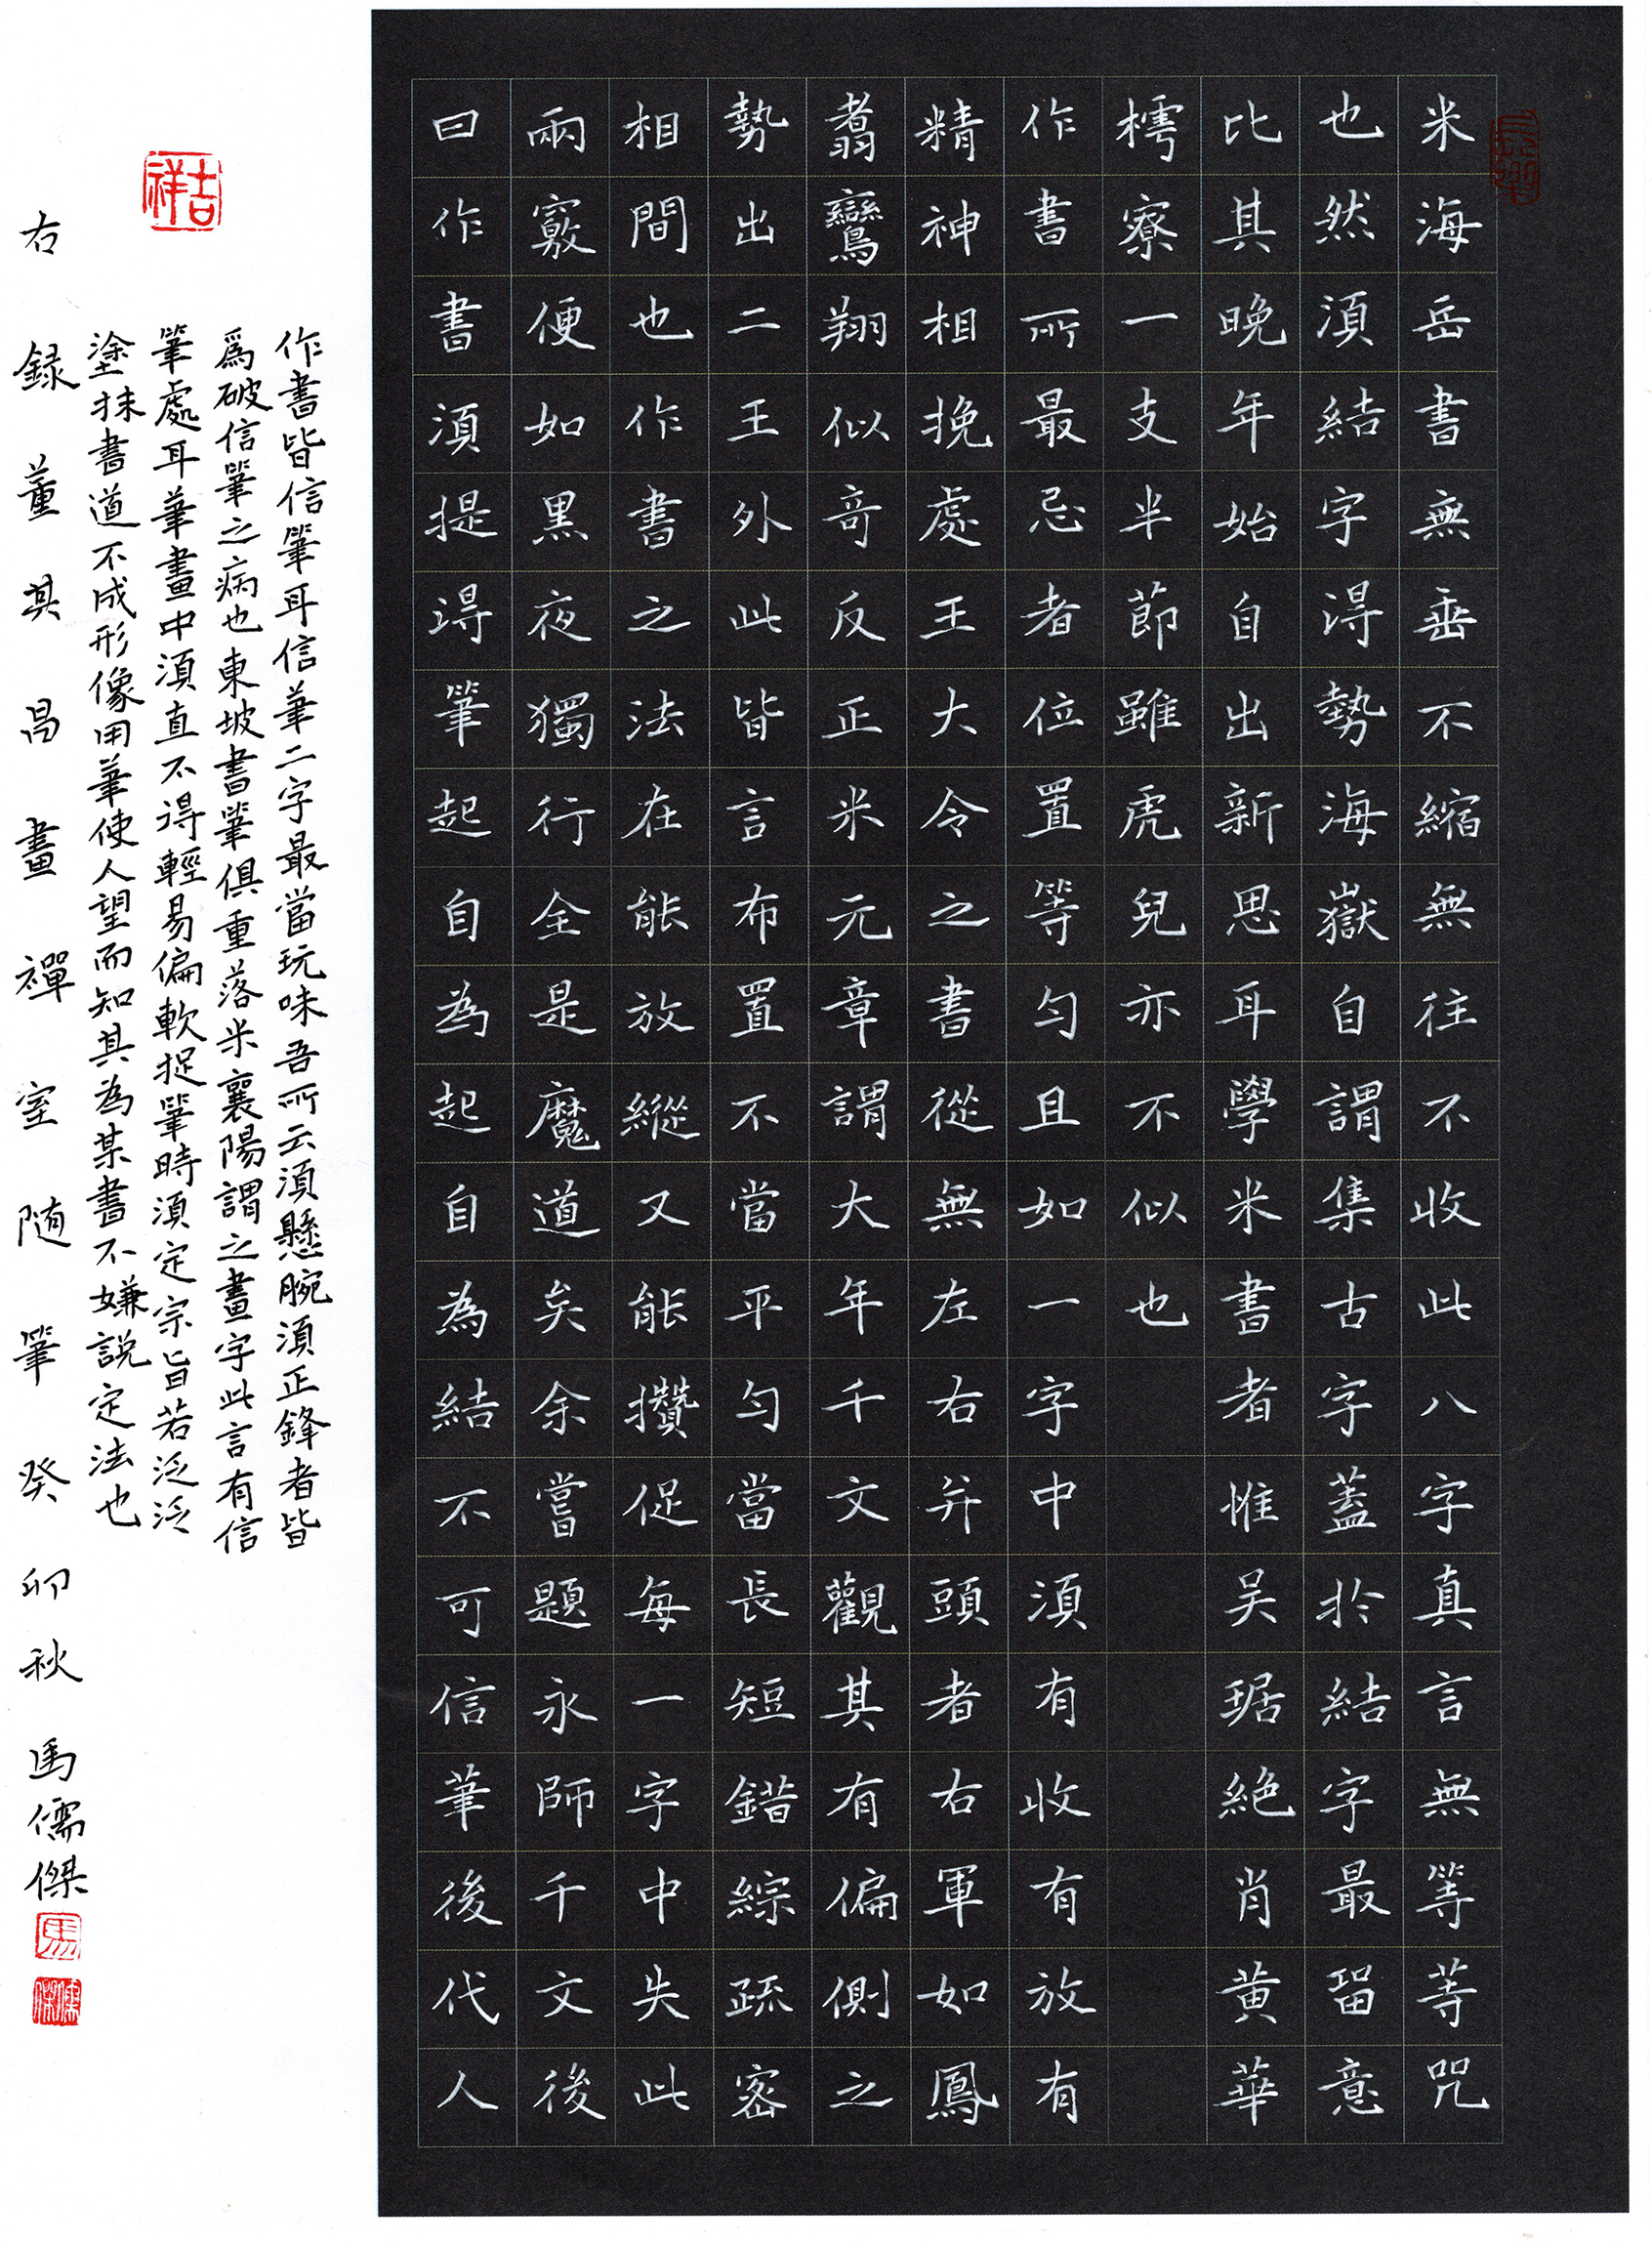 米海岳書無垂不縮無往不收此八字真言無等等咒
也然須結字得勢海嶽自謂集古字蓋於結字最留意
比其晚年始自出新思耳學米書者惟吴琚絕肖黄華
樗寮一支半節雖虎兒亦不似也
作書所最忌者位置等勻且如一字中須有收有放有
精神相挽處王大令之書從無左右并頭者右軍如鳳
翥鸞翔似奇反正米元章謂大年千文觀其有偏側之
勢出二王外此皆言布置不當平勻當長短錯綜疏密
相間也作書之法在能放縱又能攢促每一字中失此
兩竅便如黑夜獨行全是魔道矣余嘗題永師千文後
曰作書須提得筆起自為起自為結不可信筆後代人
作書皆信筆耳信筆二字最當玩味吾所云須懸腕須正鋒者皆
為破信筆之病也東坡書筆俱重落米襄陽謂之畫字此言有信
筆處耳筆畫中須直不得輕易偏軟捉筆時須定宗旨若泛泛
塗抹書道不成形像用筆使人望而知其為某書不嫌説定法也
右録董其昌畫禪室随筆癸卯秋馬儒傑
吉祥
馬
儒傑